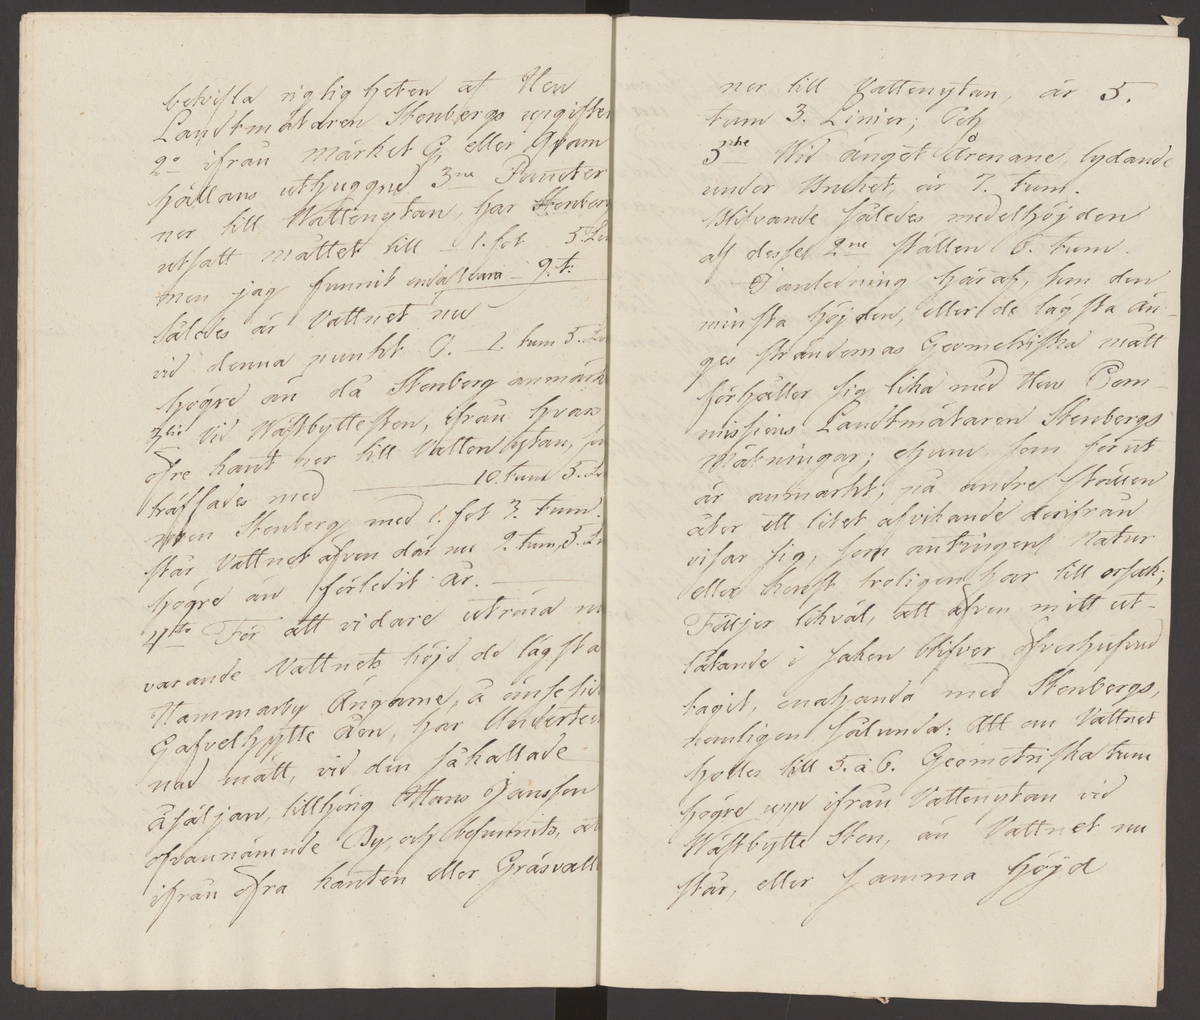 bekräfta rigtigheten af Herr
Landtmätaren Stenbergs upgifter
2o ifrån märket G, eller Gram
hällans uthuggne 3ne Puncter
ner till Vattenytan, har Stenberg
utsatt måttet till 1. fot 5.
men jag funnit endast vara 9. t:
således är Vattnet nu
vid denna punkt 1. tum 5.
högre än då Stenberg anmärk
3tio Vid Wästbyttesten, ifrån hvars
öfre kant ner till Vattenytan,
träffades med 10. tum 5.
men Stenberg med 1. fot 3. tum.
står Vattnet äfven där nu 2. tum, 5.
högre än förledit år.
4to För att vidare utröna nu
varande Vattnets höjd de lägsta
Hammarby Ängarne, å ömse sidor
Gafvelhytte åen, har Underteck
nad mätt, vid den så kallade
Åsäljan, tillhörig Hans Jansson
ofvannämnde By, och befunnits, at
ifrån öfra kanten eller Gräsvall
ner till Vattenytan, är 5.
tum 3. Linier; Och
5the Wid änget Årenane, lydande
under Bruket, är 7. tum.
Blifvande således medelhöjden
af desse 2ne ställen 6. tum.
I anledning häraf, tum den
minsta höjden, eller de lägsta än-
ges strändernas Geometriska mått
förhåller sig lika med Herr Com-
missions Landtmätaren Stenbergs
Mätningar; ehuru som förut
är anmärkt, på andre ställen
åter ett litet afvikande derifrån
visar sig, som antingen Natur
eller konst troligen har till orsak;
Följer likväl, att äfven mitt ut-
låtande i saken blifver öfverhufvud
taget, enahanda med Stenbergs,
nemligen sålunda: Att om Vattnet
hålles till 5. à 6. Geometriska tum
högre upp ifrån Vattenytan vid
Wästbytte Sten, än Vattnet nu
står, eller samma höjd